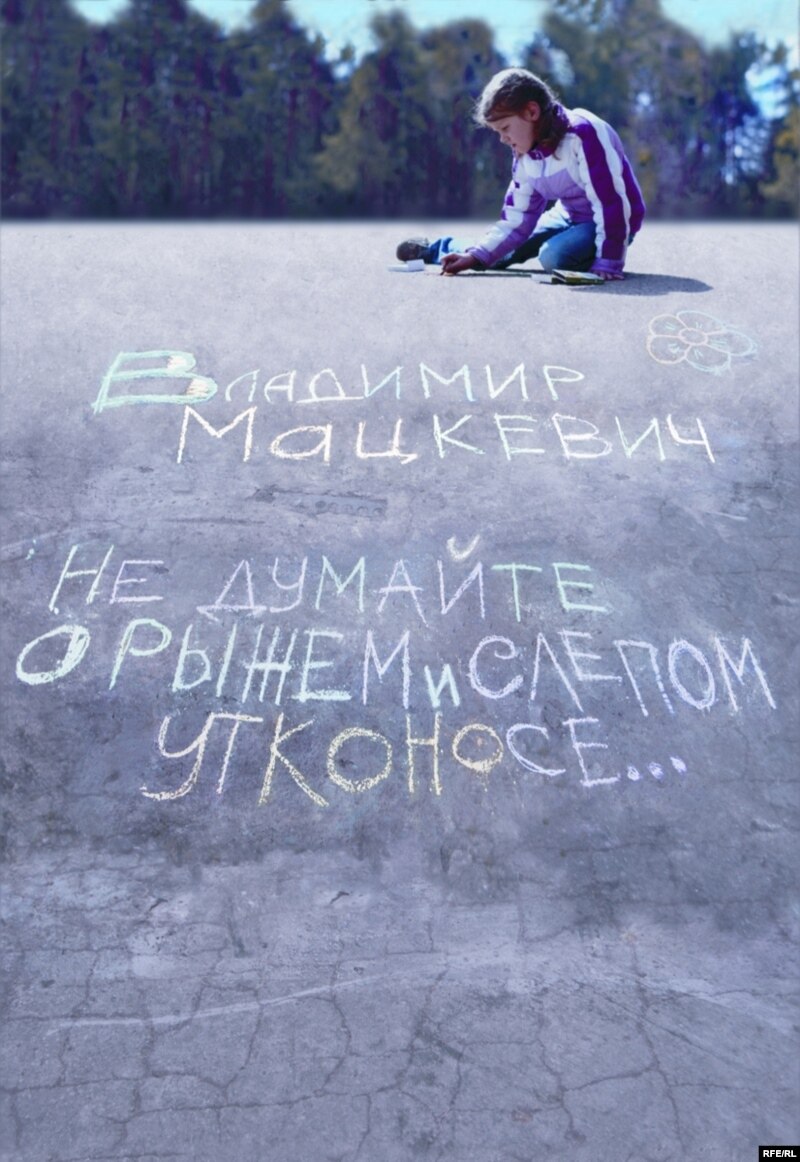 Владимир
Мацкевич
Не думайте
о рыжем и слепом
утконосе...
RFE/RL